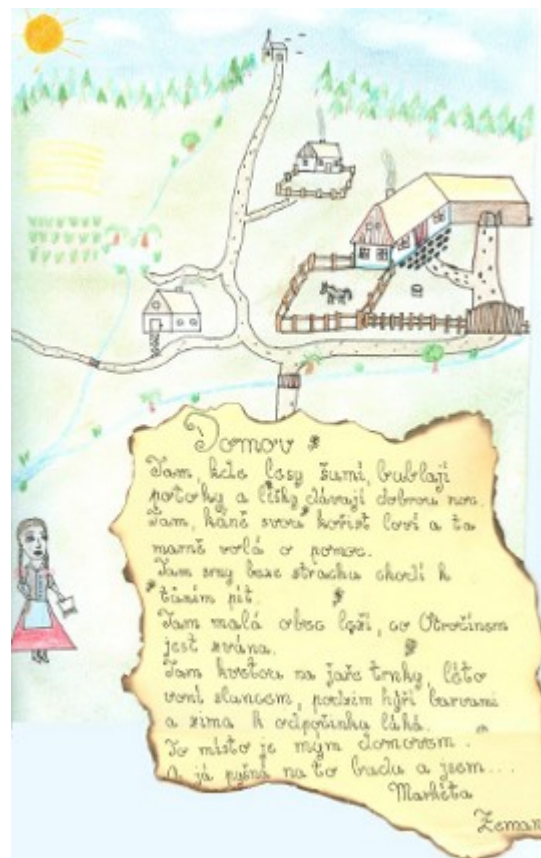 Domov
Tam, kde lesy šumí, bublají
potoky a lišky dávají dobrou noc.
Tam, káně svou kořist loví a ta
marně volá o pomoc.
Tam srny beze strachu chodí k
tůním pít.
Tam malá obec leží, co Otročínem
jest zvána.
Tam kvetou na jaře trnky, léto
voní sluncem, podzim hýří barvami
a zima k odpočinku láká.
To místo je mým domovem.
A já pyšná na to budu a jsem...
Markéta
Zeman